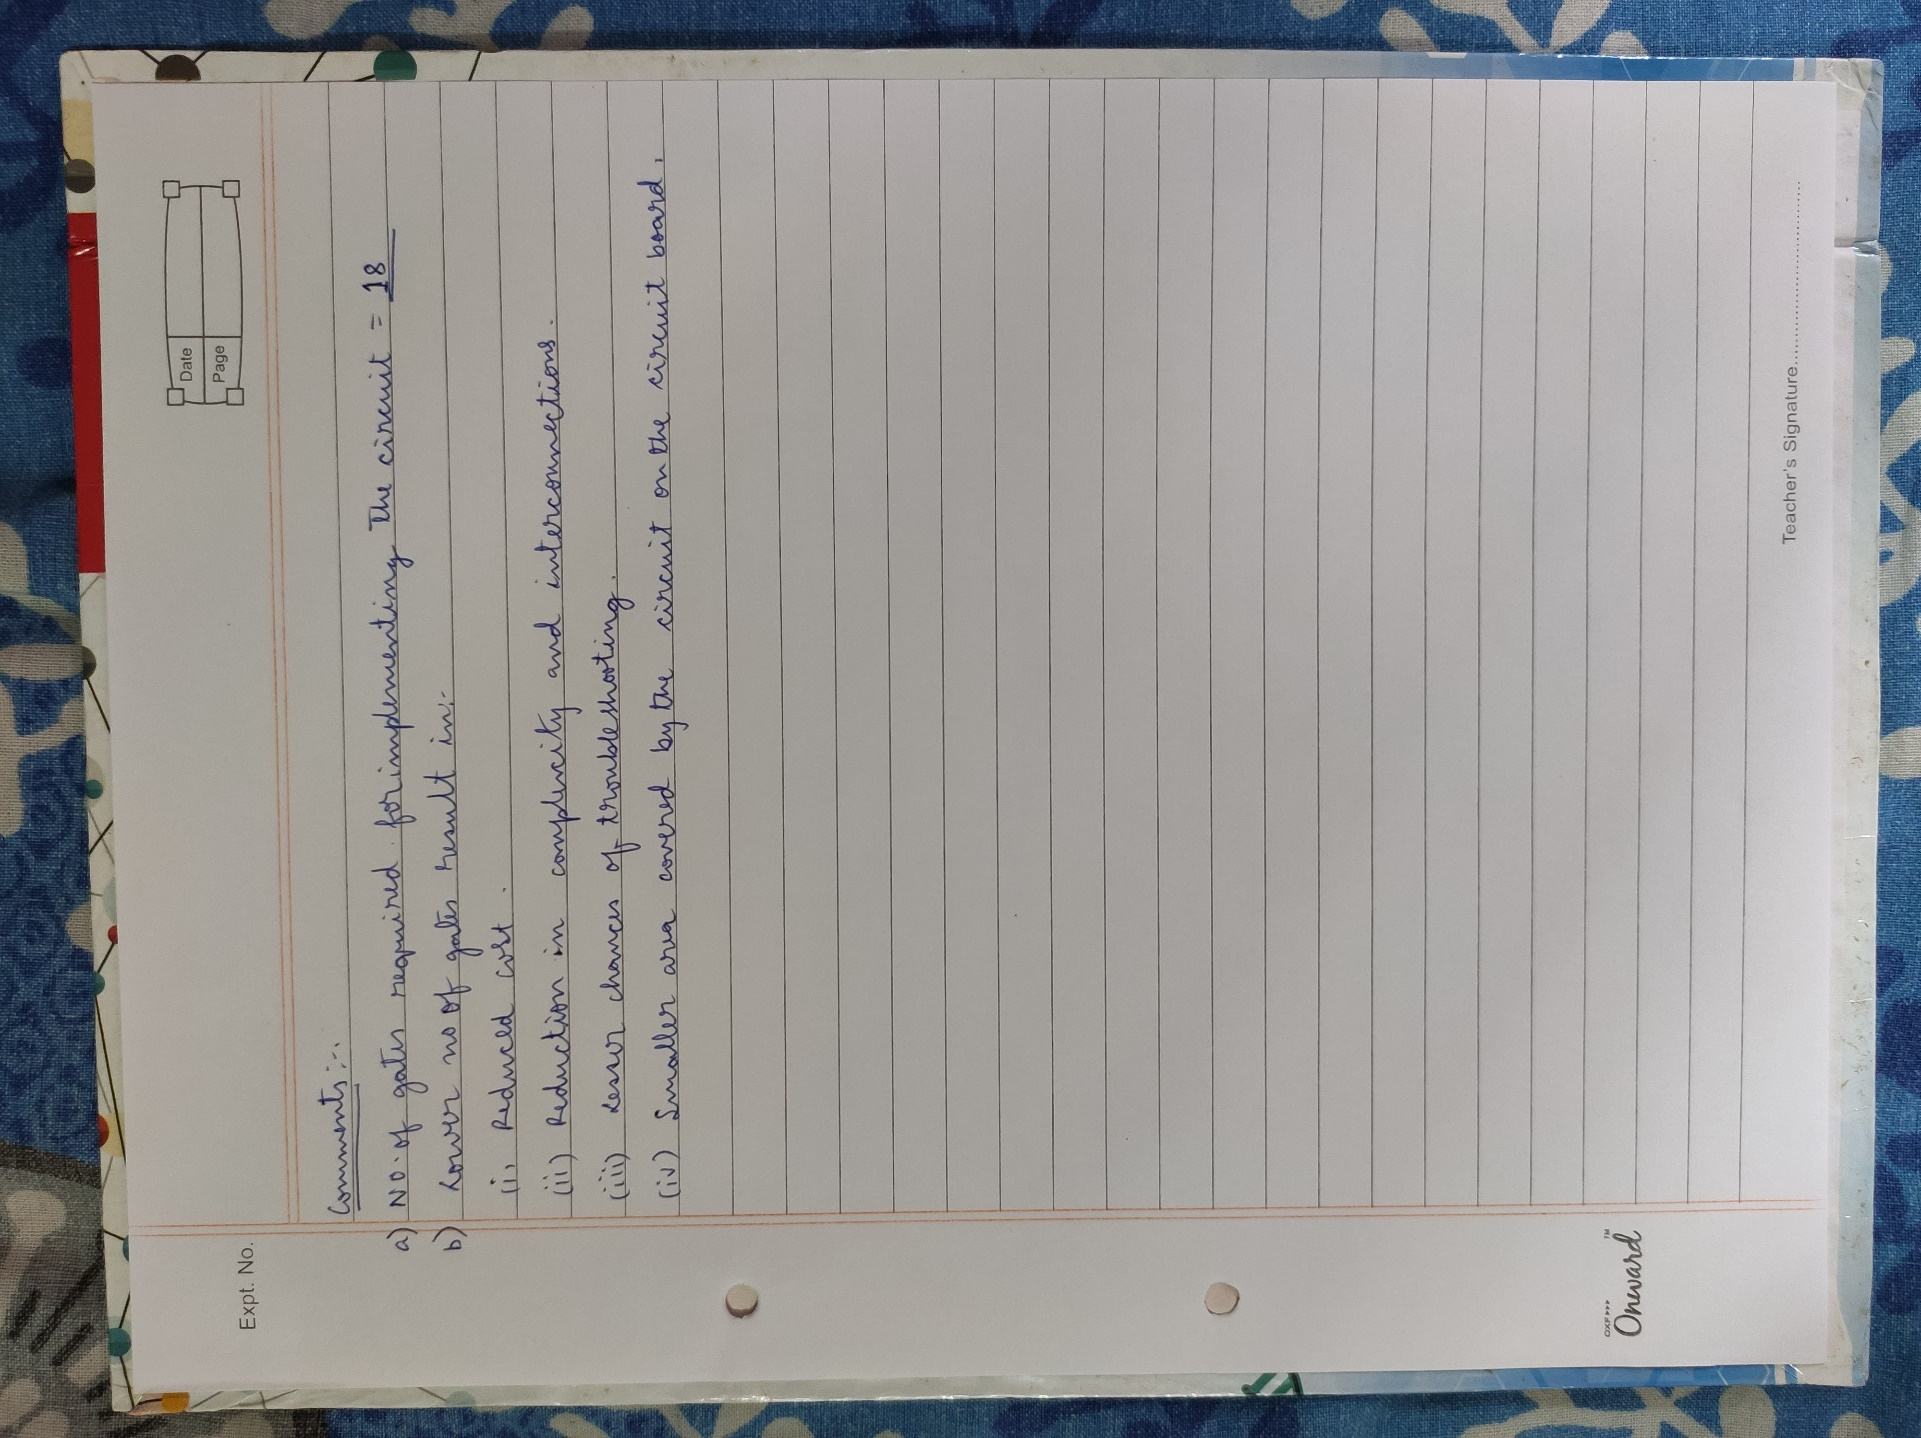 Date
Page
Expt. No.
Comments:-
a) NO. of gates required for implementing the circuit = 18
b) Lower no of gates result in:-
(i) Reduced cost.
(ii) Reduction in complexity and interconnections.
(iii) Lesser chances of troubleshooting.
(iv) Smaller area covered by the circuit on the circuit board.
OXF
Onward™
Teacher's Signature